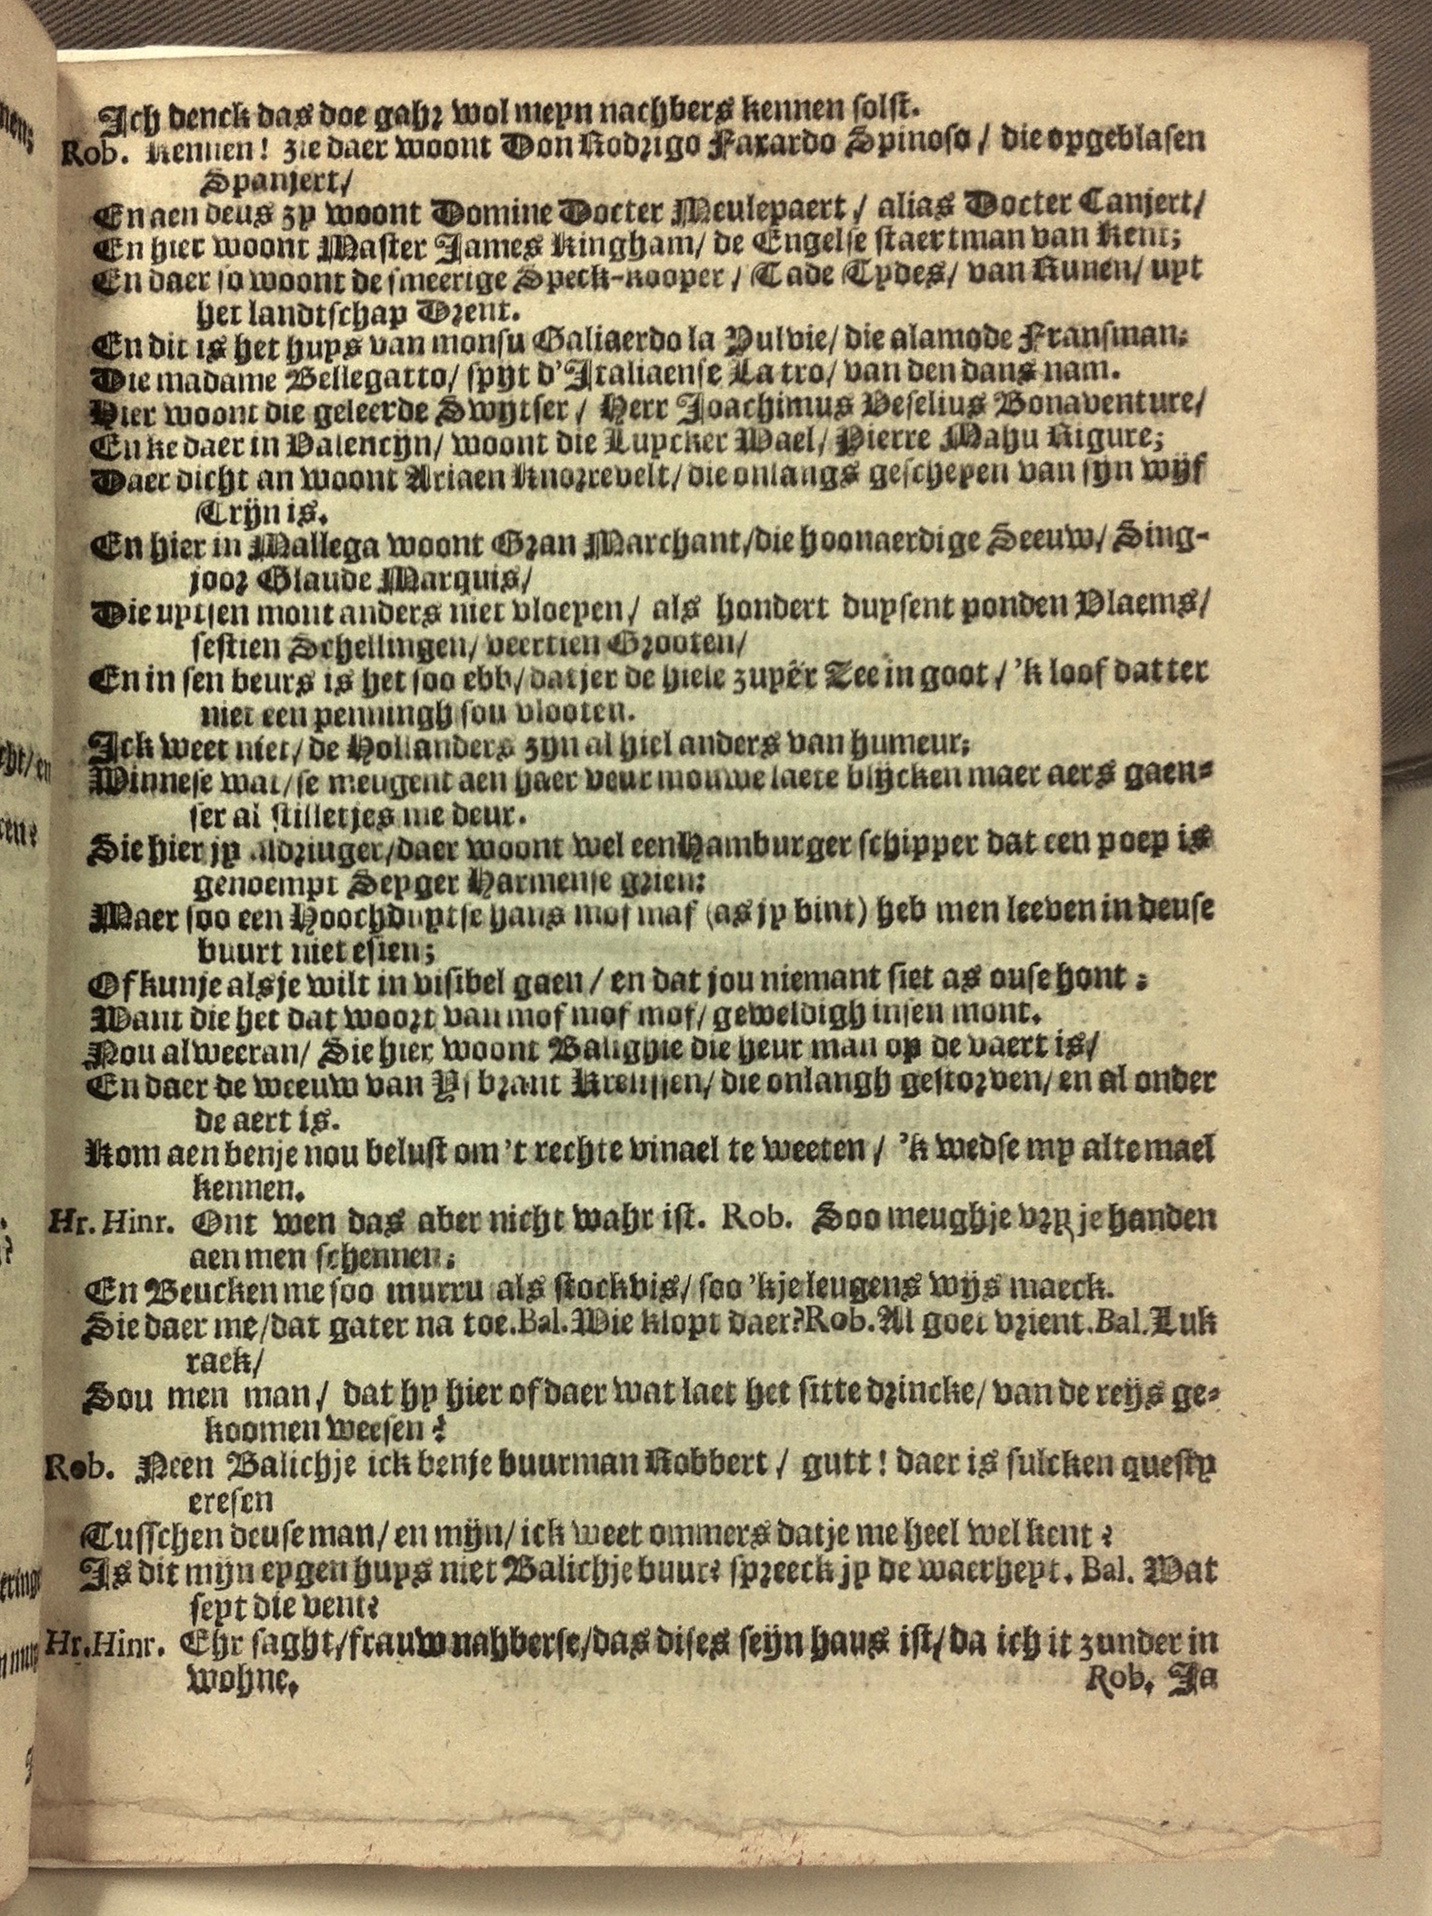 Ich denck das doe gahr wol meyn nachbers kennen solst.
Rob. Kennen! zie daer woont Don Rodrigo Faxardo Spinoso / die opgeblasen
Spanjert /
En aen deus zy woont Domine Docter Meulepaert / alias Docter Canjert /
En hier woont Master James Kingham / de Engelse staertman van Kent;
En daer so woont de smeerige Speck-kooper / Tade Tydes / van Runen / uyt
het landtschap Drent.
En dit is het huys van monsu Galiaerdo la Pulvie / die alamode Fransman:
Die madame Bellegatto / spijt d'Italiaense Latro / van den dans nam.
Hier woont die geleerde Swytser / Herr Joachimus Veselius Bonaventure /
En ke daer in Valencijn / woont die Luycker Wael / Pierre Mahu Rigure;
Daer dicht an woont Ariaen Knorrevelt / die onlangs geschepen van sijn wijf
Trijn is.
En hier in Mallega woont Gran Marchant / die hoonaerdige Seeuw / Sing-
joor Glaude Marquis /
Die uytsen mont anders niet vloeyen / als hondert duysent ponden Vlaems /
sestien Schellingen / veertien Grooten /
En in sen beurs is het soo ebb / datjer de hiele zuyër Zee in goot / 'k loof datter
niet een penningh sou vlooten.
Ick weet niet / de Hollanders zijn al hiel anders van humeur;
Winnese wat / se meugent aen haer veur mouwe laete blijcken maer aers gaen-
ser al stilletjes me deur.
Sie hier jy / daer woont wel een Hamburger schipper dat een poep is
genoempt Seyger Harmense grien:
Maer soo een Hoochduytse hans mof maf (as jy bint) heb men leeven in deuse
buurt niet esien;
Of kunje als je wilt in visibel gaen / en dat jou niemant siet as onse hont:
Want die het dat woort van mof mof mof / geweldigh in sen mont.
Nou al weeran / Sie hier woont Balighie die heur man op de vaert is /
En daer de weeuw van Ysbrant / die onlangh gestorven / en al onder
de aert is.
Kom aen benje nou belust om 't rechte vinael te weeten / 'k wedse my altemael
kennen.
Hr. Hinr. Ont wen das aber nicht wahr ist. Rob. Soo meughje vry je handen
aen men schennen:
En Beucken me soo murru als stockvis / soo 'kje leugens wijs maeck.
Sie daer me / dat gater na toe. Bal. Wie klopt daer? Rob. Al goet vrient. Bal. Luk
raek /
Sou men man / dat hy hier of daer wat laet het sitte drincke / van de reijs ge-
koomen weesen?
Rob. Neen Balichje ick benje buurman Robbert / gutt! daer is sulcken questy
eresen
Tusschen deuse man / en mijn / ick weet ommers datje me heel wel kent?
Is dit mijn eygen huys niet Balichje buur? spreeck jy de waerheyt. Bal. Wat
seyt die vent?
Hr. Hinr. Ehr saght / frauw nahberse / das dises seijn haus ist / da ich it zunder in
wohne.
Rob. Ja